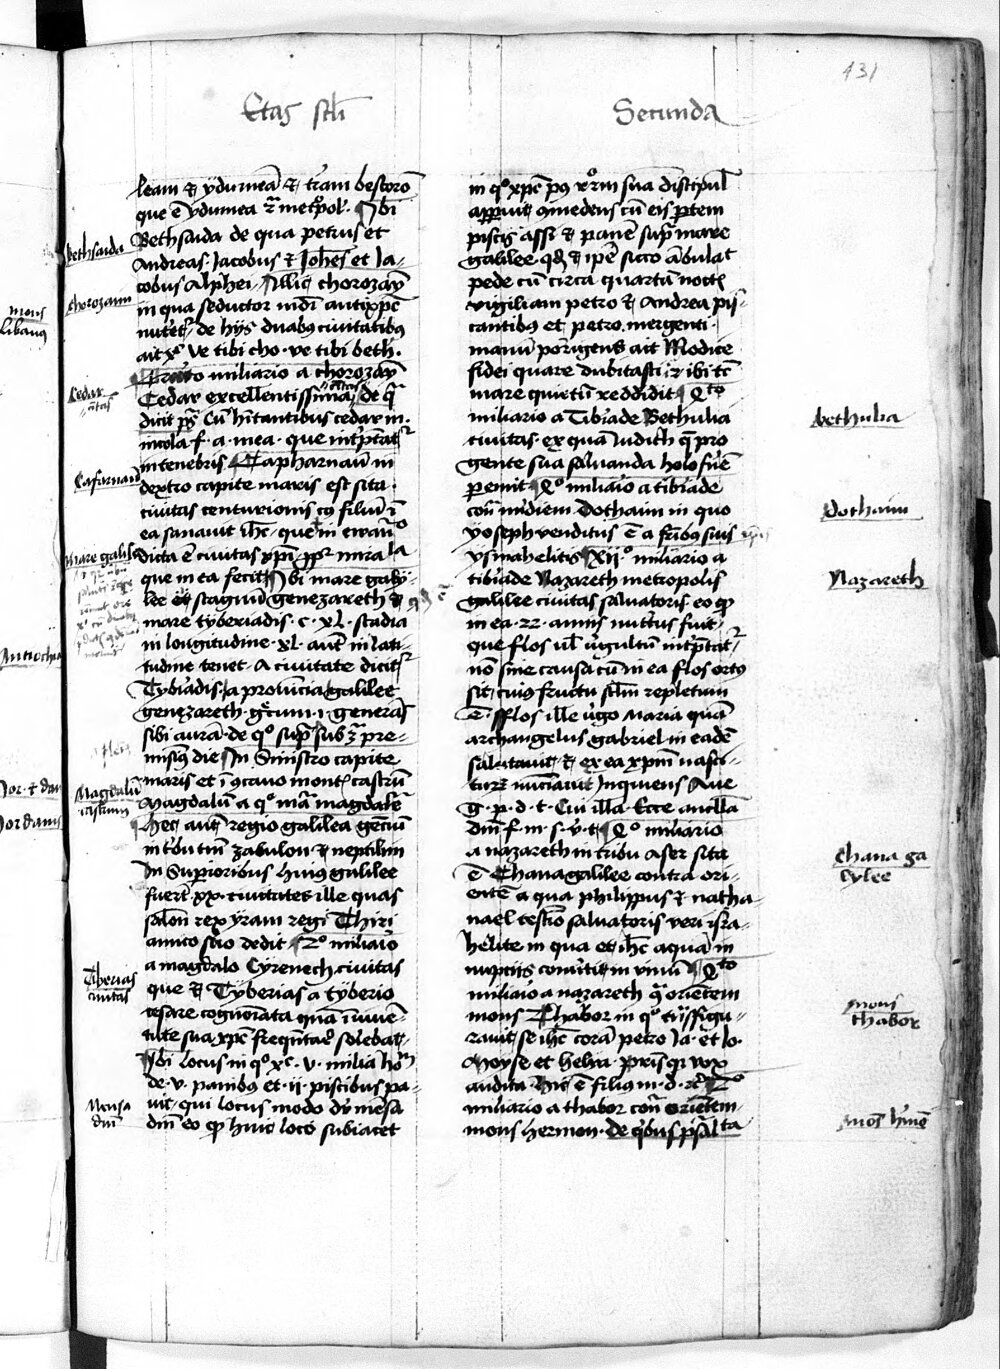 431
Etas scđi
Secunda
leam ⁊ ydumeā ⁊ trām bestorō
que ē ydumea ⁊ met̄pol. Ibi
Bethsaida de qua petrus et
Andreas. Jacobus ⁊ Joħes et Ja-
cobus Alphei. Illic chorozaȳ
in qua seductor mđi antixp̄c
de hijs duabꝯ ciuitatibꝯ
ait xꝰ Ve tibi cho. ve tibi beth.
miliario a chorozaȳ
Cedar excellentissima de q̄
dicit pš Cū hītantibus cedar in.
incola f. a. mea. que int̄p̄tat̄
in tenebris Capharnaū in
dextro capite maris est sita.
ciuitas centurionis cꝯ filiū ī
ea sanauit iħc. que in ewāḡo
dicta ē ciuitas xp̄i. p̄p̄ mira la
que in ea fecit Ibi mare galy-
lee et stagnum genezareth ⁊
mare tyberiadis. c. xl. stadia
in longitudine. xl. aut̄ in lati-
tudine tenet. A ciuitate dicit̄
Tyb̄iadis. a prouincia galilee
genezareth. grecum. i. generās
sibi aurā. de qº sup̄ sub
missꝯ die In Sinistro capite
maris et ī ꝯcauo mont̄ castrū
Magdalū a qº mā magdalē
hec aut̄ regio galilea gēciū
in t̄bu tm̄ zabulon ⁊ neptilim
In Supioribus huiꝯ galilee
fuer̄t xx. ciuitates ille quas
salōn rex yram regi Thiri
amico suo dedit 2º miliaiō
a magdalo Cyrenech ciuitas
que ⁊ Tyberias a tyberio
cesare cognoīata quā ī iuuē-
tute sua xp̄c freq̄ntar̄ solebat
Ibi locus in qº xp̄c. v. milia hōm̄
de. v. panibꝯ et. ij. piscibus pa-
uit. qui locus modo dr̄ mēsa
dn̄i eo qꝫ huic locō subiacet
in qº xp̄c pꝯ xr̄m̄ sua discipul̄
apparuit ꝯmedens cū eis p̄tem
piscis assi ⁊ panē sup̄ mare
galilee. qđ ⁊ ip̄e sicco ābulat
pede cū circa quartā noct̄
vigiliam petro ⁊ Andrea pis-
cantibꝯ et petro mergenti.
manū porrigens ait Modice
fidei quare dubitasti ⁊ ibi t̄c
mare quietū reddidit 4to
miliario a Tib̄iade Bethulia
ciuitas. ex qua Judith q̄ pro
gente sua saluanda holofn̄ē
pemit 4º miliaiō a tib̄iade
con̄ m̄diem Dothaim in quo
yoseph venditus ē a fr̄ibꝯ suis
ysmahelitis Xijº miliario a
tib̄iade Nazareth metropolis
galilee ciuitas saluatoris. eo qꝫ
in ea. 22. annis nutritus fuit.
que flos ul̄ v̄gultū int̄p̄tat̄
nō sine causa cū in ea flos ortꝯ
sit, cuiꝯ fructu sc̄lm̄ repletum
ē. Flos ille v̄go Maria quā
archangelus gabriel in eadē
salutauit, ⁊ ex ea xp̄m nasci-
tur̄ nūciauit inquiens Aue
g. p. d. t. Cui illa. Ecce ancilla
dn̄i. f. m. s. v. t 4º miliario
a nazareth in tribu aser sita
ē Chana galilee contra ori-
entē a qua philippus ⁊ natha-
nael testīo saluatoris veri isra-
helite in qua et iħc aquā in
nuptiis conuertit in vinū 4to
miliaiō a nazareth q̄ orientem
mons Thabor in qº trāsfigu-
rauit se iħc corā petro. Ja. et Jo.
Moyse et helya prīsqꝫ vox
audita. Hic ē filius m. d. ⁊c̄ 2º
miliario a thabor con̄ orientem
mons hermon. de qͥbus psalta
bethsaida
chorozaim
Cedar
Cafarnaū
mare galilee
Magdalū
castrum
Tiberias
ciuitas
Mensa
dn̄i
mons
libanꝯ
Antiochia
Jor. ⁊ dan
Jordanis
bethulia
Dothaim
Nazareth
chana ga
lylee
mons
thabor
Mōs h̄mō